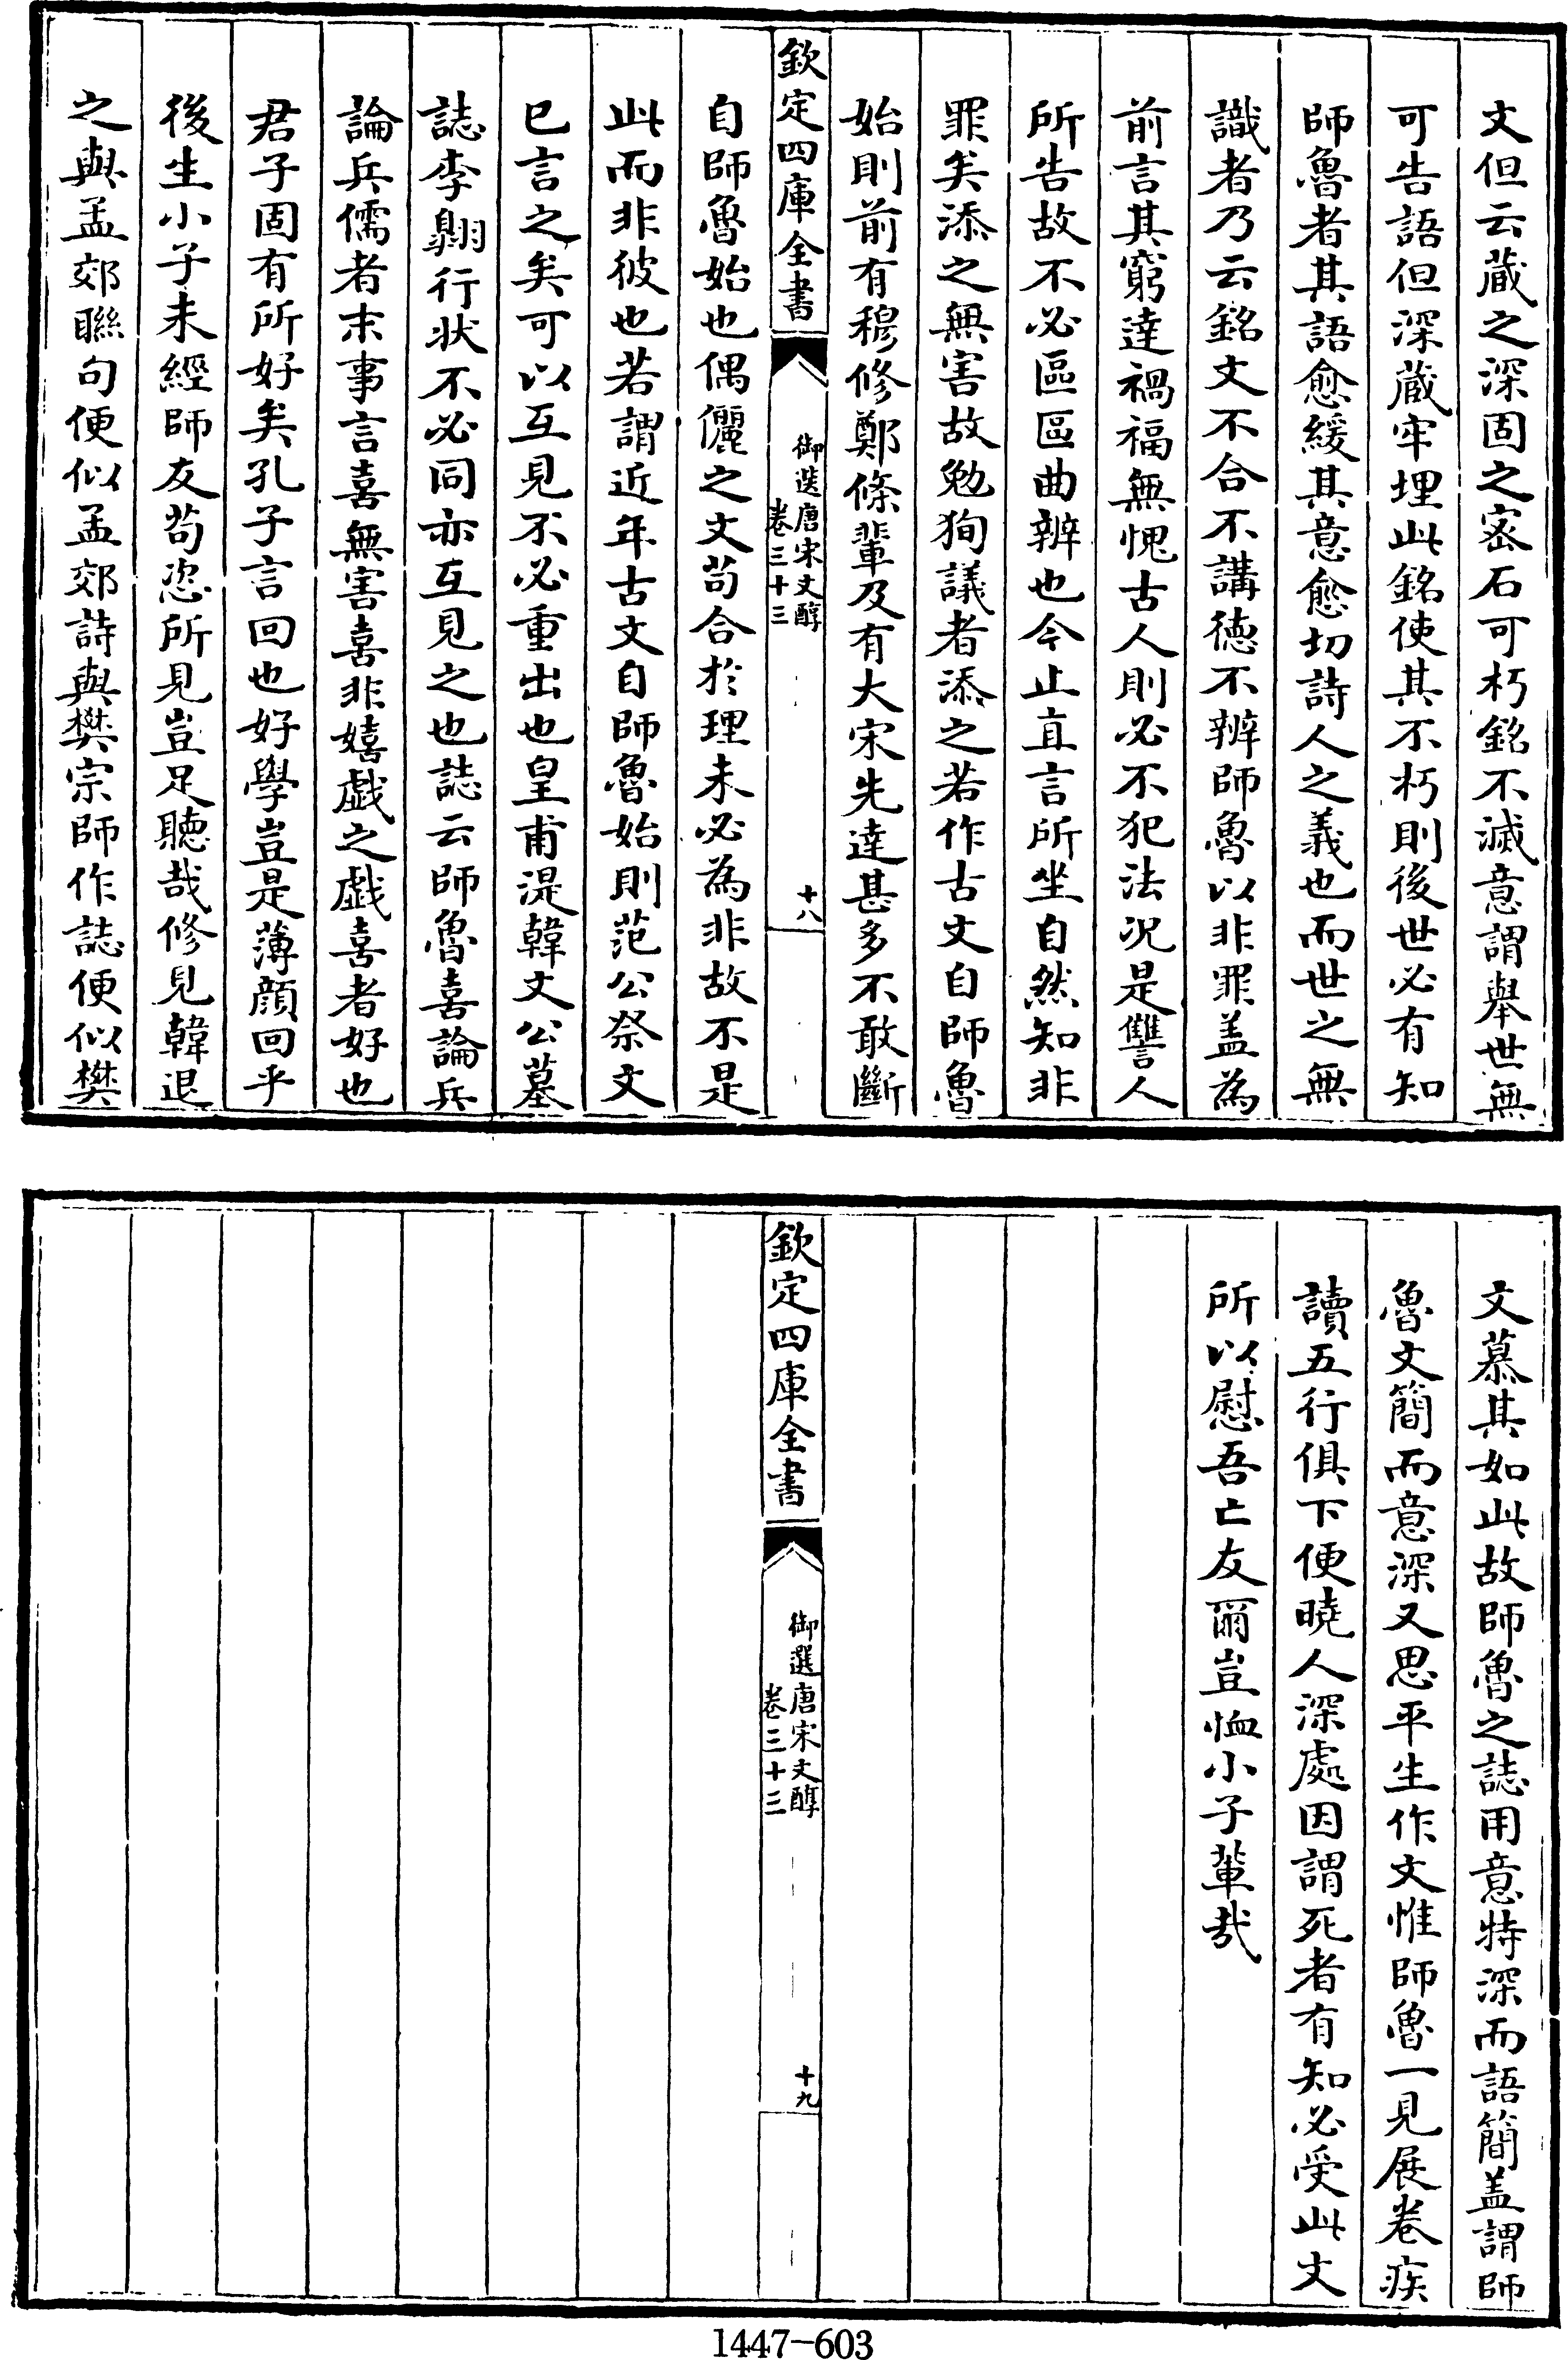 文但云蔵之深固之宻石可朽銘不滅意謂舉世無
可告語但深蔵牢埋此銘使其不朽則後世必有知
師魯者其語愈緩其意愈切詩人之義也而世之無
識者乃云銘文不合不講徳不辨師魯以非罪盖為
前言其窮達禍福無愧古人則必不犯法況是讐人
所告故不必區區曲辨也今止直言所坐自然知非
罪矣添之無害故勉狥議者添之若作古文自師魯
始則前有穆修鄭條輩及有大宋先達甚多不敢斷
欽定四庫全書
御選唐宋文醇
卷三十三
十八
自師魯始也偶儷之文茍合於理未必為非故不是
此而非彼也若謂近年古文自師魯始則范公祭文
已言之矣可以互見不必重出也皇甫湜韓文公墓
誌李翺行狀不必同亦互見之也誌云師魯喜論兵
論兵儒者末事言喜無害喜非嬉戯之戯喜者好也
君子固有所好矣孔子言回也好學豈是薄顔回乎
後生小子未經師友茍恣所見豈足聽哉修見韓退
之與孟郊聯句便似孟郊詩與樊宗師作誌便似樊
文慕其如此故師魯之誌用意特深而語簡盖謂師
魯文簡而意深又思平生作文惟師魯一見展卷疾
讀五行俱下便曉人深處因謂死者有知必受此文
所以慰吾亡友爾豈恤小子輩哉
欽定四庫全書
御選唐宋文醇
卷三十三
十九
1447-603